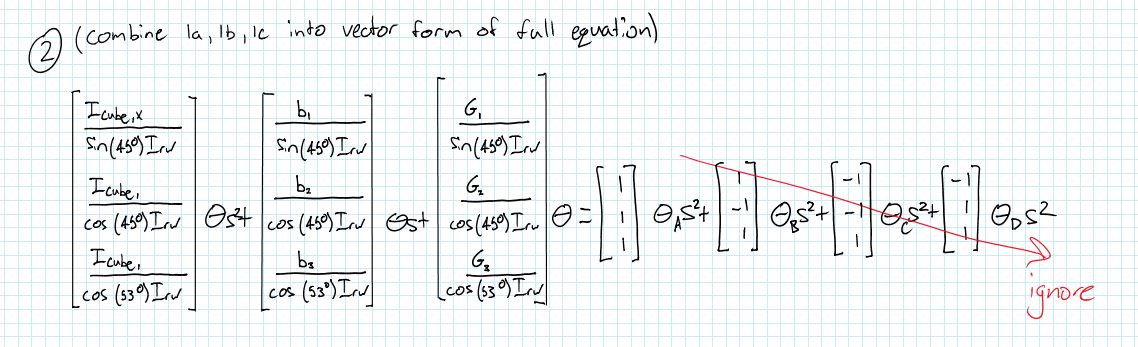 ② (combine 1a, 1b, 1c into vector form of full equation)
[I_cube,x / sin(45°) I_rw ; I_cube, / cos(45°) I_rw ; I_cube, / cos(53°) I_rw] θs² + [b₁ / sin(45°) I_rw ; b₂ / cos(45°) I_rw ; b₃ / cos(53°) I_rw] θs + [G₁ / sin(45°) I_rw ; G₂ / cos(45°) I_rw ; G₃ / cos(53°) I_rw] θ = [1 ; 1 ; 1] θ_A s² + [1 ; -1 ; 1] θ_B s² + [-1 ; -1 ; 1] θ_C s² + [-1 ; 1 ; 1] θ_D s²
ignore